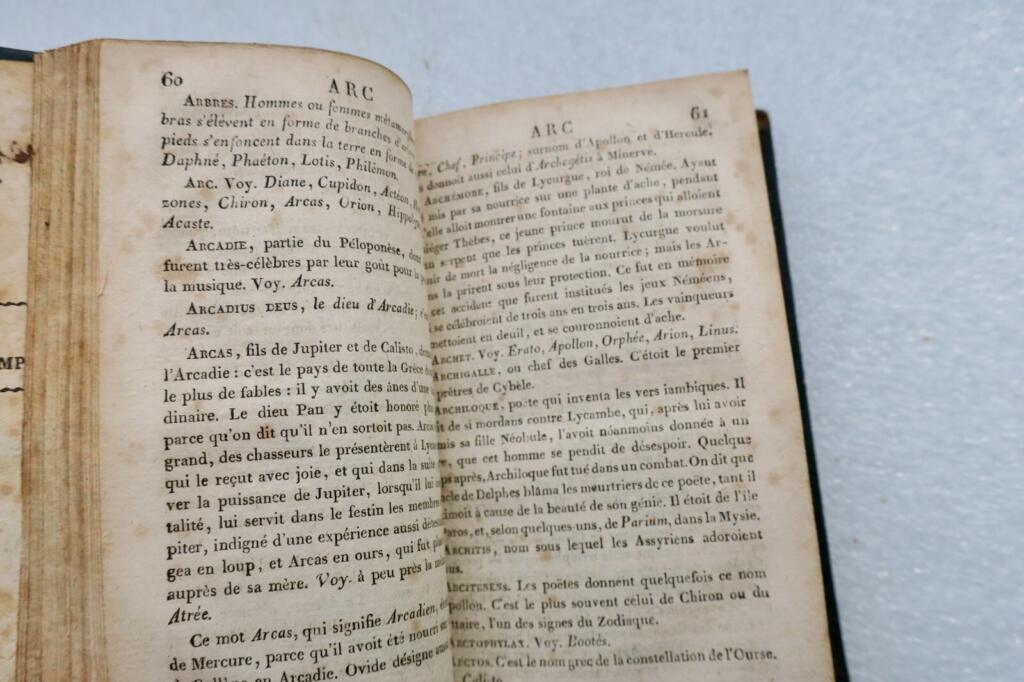 60
ARC
ARBRES. Hommes ou femmes
bras s'élèvent en forme de branches
pieds s'enfoncent dans la terre en forme
Daphné, Phaéton, Lotis, Philémon.
ARC. Voy. Diane, Cupidon, Actéon,
zones, Chiron, Arcas, Orion,
Acaste.
ARCADIE, partie du Péloponèse,
furent très-célèbres par leur goût pour
la musique. Voy. Arcas.
ARCADIUS DEUS, le dieu d'Arcadie;
Arcas.
ARCAS, fils de Jupiter et de Calisto,
l'Arcadie : c'est le pays de toute la Grèce
le plus de fables : il y avoit des ânes d'une
dinaire. Le dieu Pan y étoit honoré
parce qu'on dit qu'il n'en sortoit pas.
grand, des chasseurs le présentèrent à
qui le reçut avec joie, et qui dans la suite
ver la puissance de Jupiter, lorsqu'il
talité, lui servit dans le festin les
piter, indigné d'une expérience aussi
gea en loup, et Arcas en ours, qui fut
auprès de sa mère. Voy. à peu près la
Atrée.
Ce mot Arcas, qui signifie Arcadien,
de Mercure, parce qu'il avoit été nourri
en Arcadie. Ovide désigne
MP
61
ARC
Chef, Principe; surnom d'Apollon et d'Hercule.
donnoit aussi celui d'Archegétis à Minerve.
ARCHÉMORE, fils de Lycurgue, roi de Némée. Ayant
é mis par sa nourrice sur une plante d'ache, pendant
'elle alloit montrer une fontaine aux princes qui alloient
iéger Thèbes, ce jeune prince mourut de la morsure
un serpent que les princes tuèrent. Lycurgue voulut
nir de mort la négligence de la nourrice; mais les Ar-
ns la prirent sous leur protection. Ce fut en mémoire
cet accident que furent institués les jeux Néméens,
i se célébroient de trois ans en trois ans. Les vainqueurs
mettoient en deuil, et se couronnoient d'ache.
ARCHET. Voy. Erato, Apollon, Orphée, Arion, Linus.
ARCHIGALLE, ou chef des Galles. C'étoit le premier
prêtres de Cybèle.
ARCHILOQUE, poëte qui inventa les vers iambiques. Il
de si mordans contre Lycambe, qui, après lui avoir
mis sa fille Néobule, l'avoit néanmoins donnée à un
re, que cet homme se pendit de désespoir. Quelque
ps après, Archiloque fut tué dans un combat. On dit que
acle de Delphes blâma les meurtriers de ce poëte, tant il
imoit à cause de la beauté de son génie. Il étoit de l'île
aros, et, selon quelques-uns, de Parium, dans la Mysie.
ARCHITIS, nom sous lequel les Assyriens adoroient
us.
ARCITENENS. Les poëtes donnent quelquefois ce nom
pollon. C'est le plus souvent celui de Chiron ou du
ttaire, l'un des signes du Zodiaque.
ARCTOPHYLAX. Voy. Bootès.
ARCTOS. C'est le nom grec de la constellation de l'Ourse.
Calisto